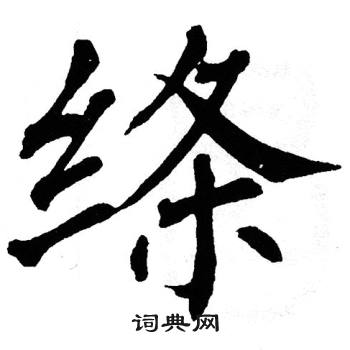 绦
词典网